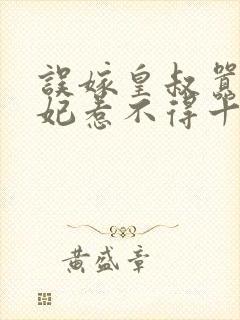 誤嫁皇叔
妃惹不得
黄盛章